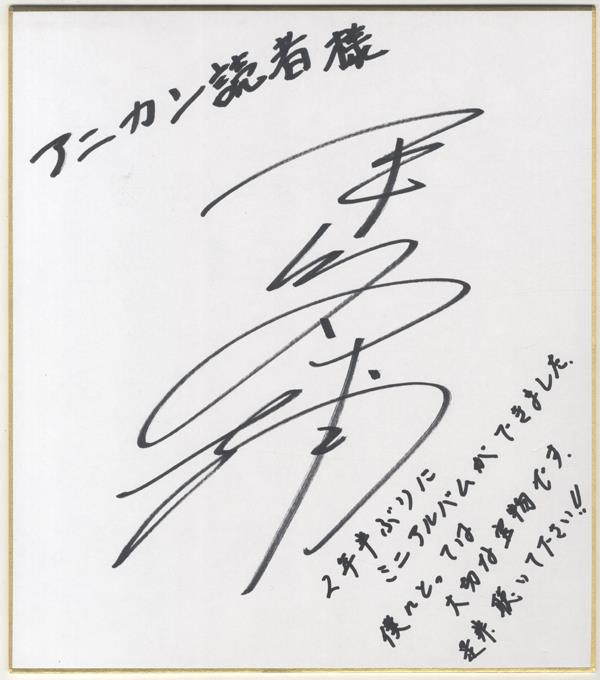 アニカン読者様
2年半ぶりに
ミニアルバムができました.
僕にとっては
大切な宝物です.
是非.聴いて下さい!!